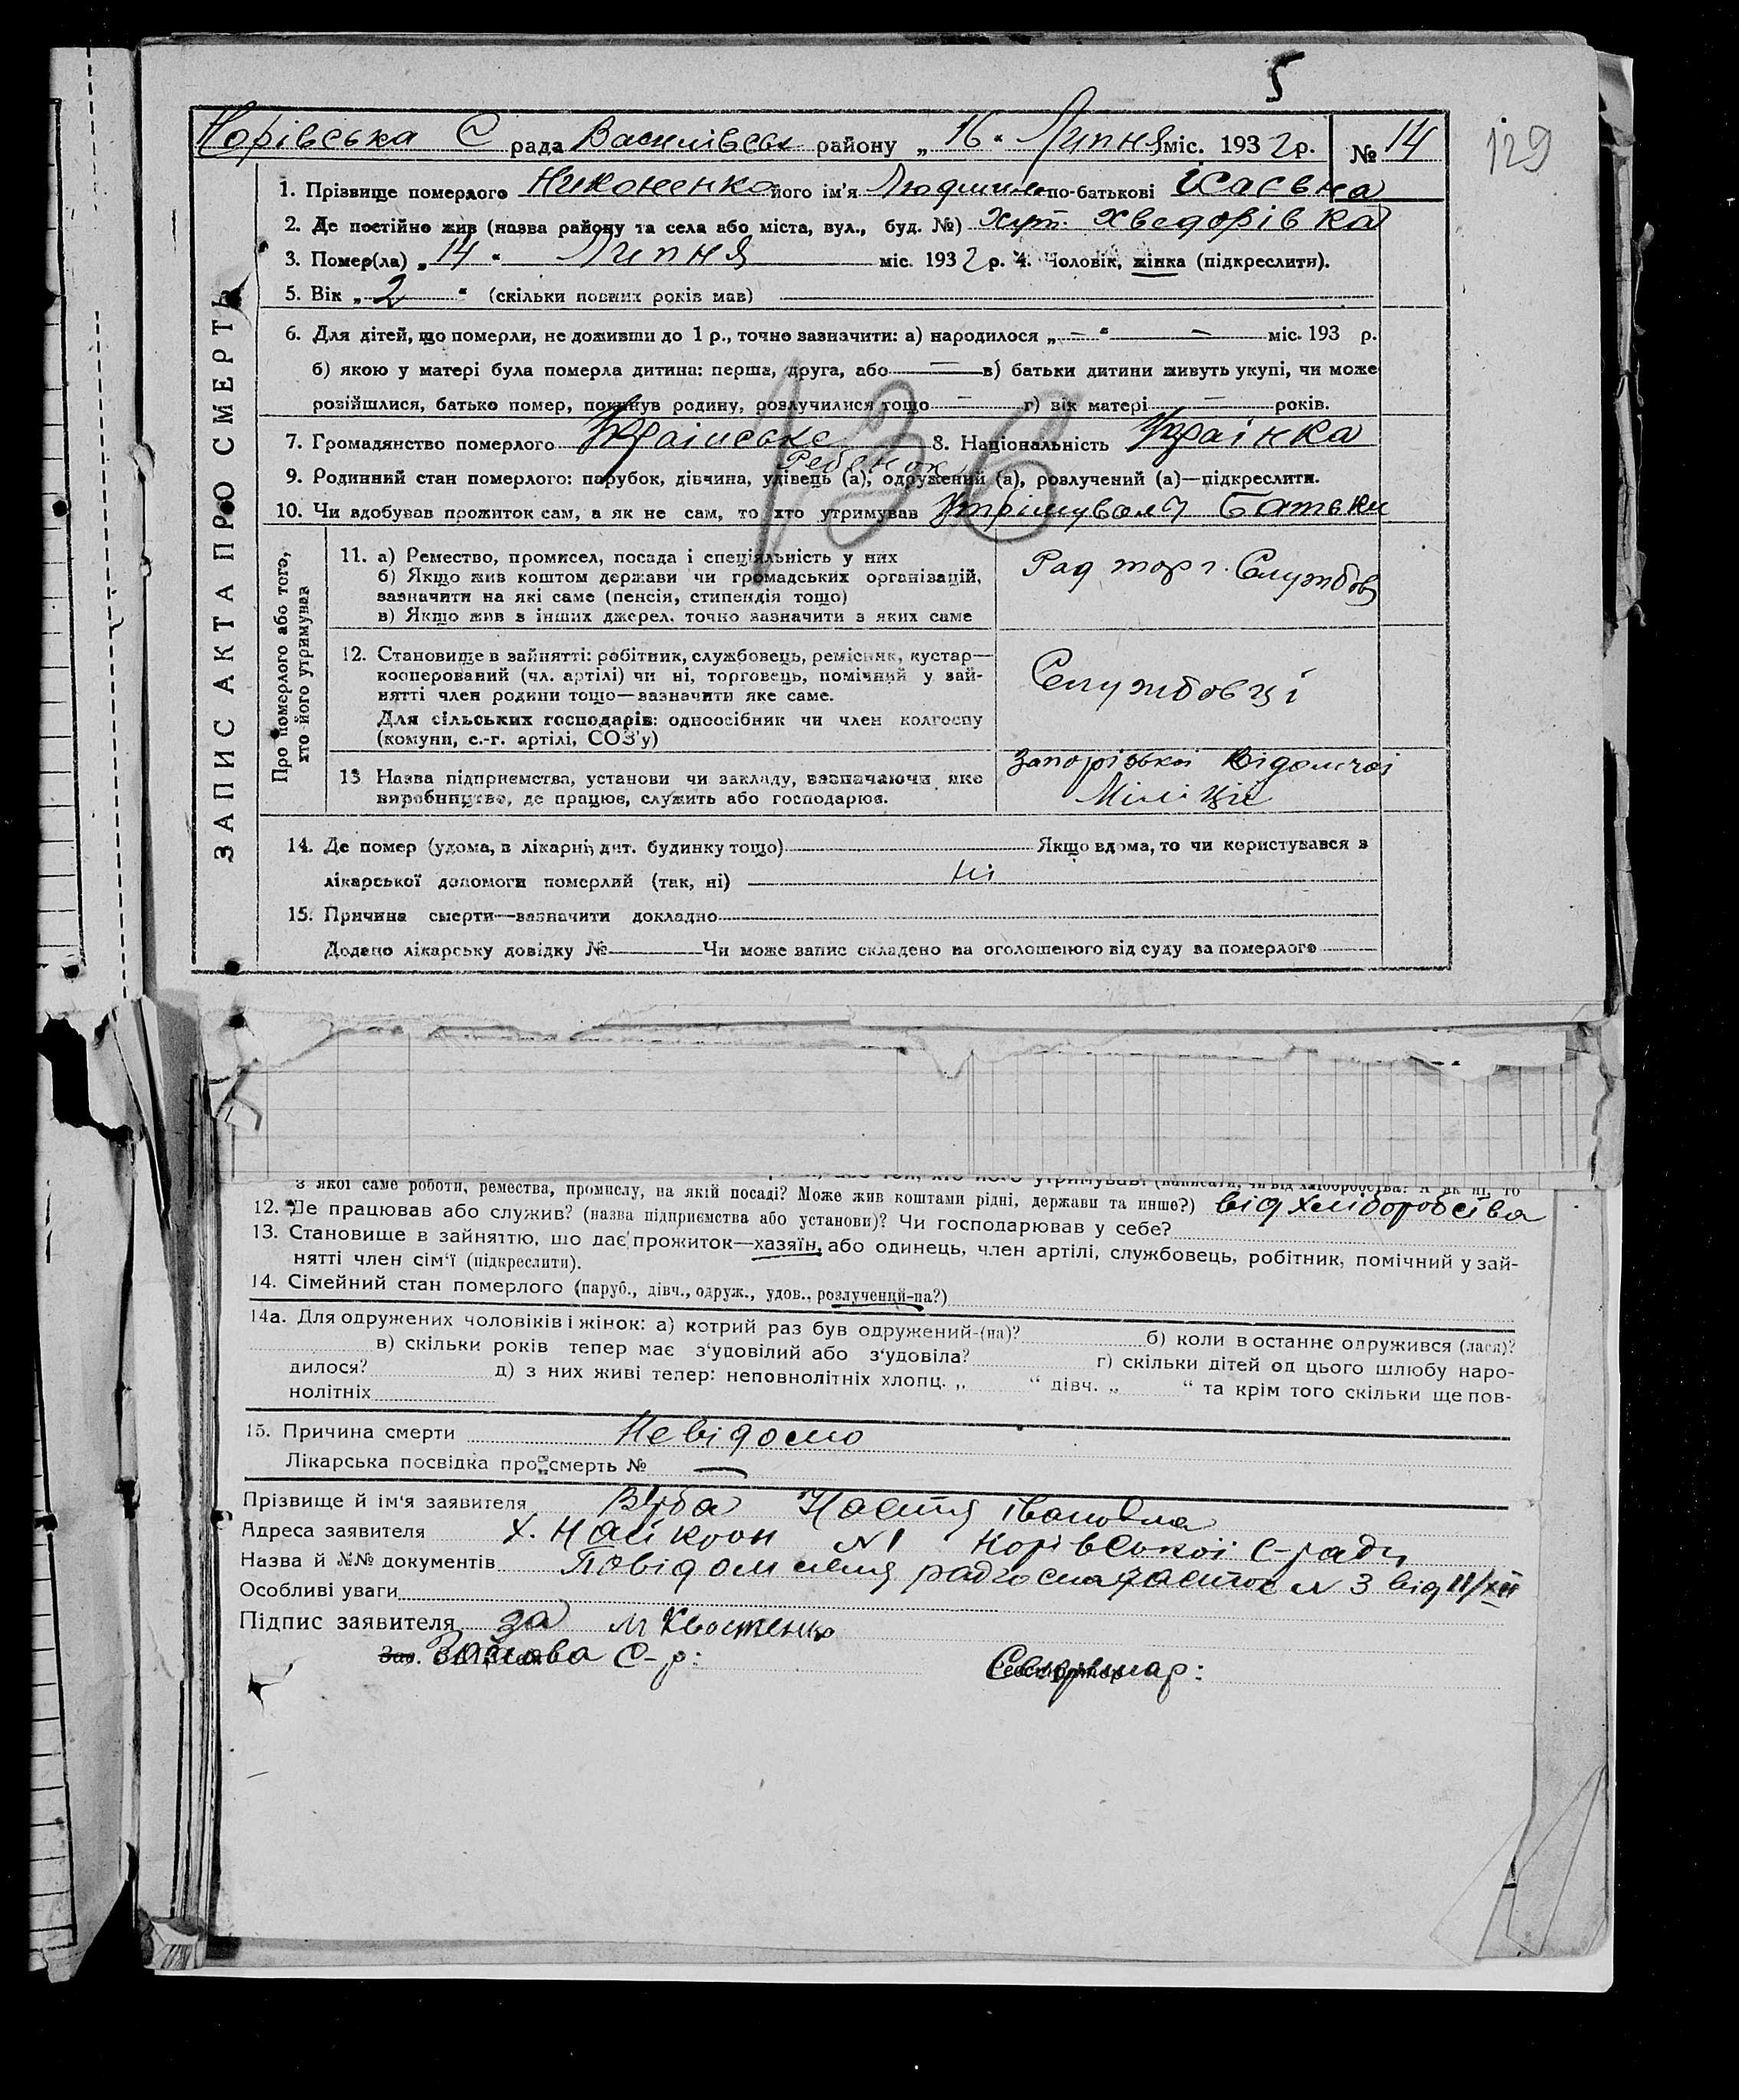 5
129
Норівська С рада Василівськ району „16" Липня міс. 1932 р. № 14
ЗАПИС АКТА ПРО СМЕРТЬ
1. Прізвище померлого Никоненко його ім'я Людмила по-батькові Ісаєвна
2. Де постійно жив (назва району та села або міста, вул., буд. №) хут. Хведорівка
3. Помер(ла) „14" Липня міс. 1932 р. 4. Чоловік, жінка (підкреслити).
5. Вік „2" (скільки повних років мав)
6. Для дітей, що померли, не доживши до 1 р., точно зазначити: а) народилося „–" – міс. 193 р.
б) якою у матері була померла дитина: перша, друга, або — в) батьки дитини живуть укупі, чи може
розійшлися, батько помер, покинув родину, розлучилися тощо – г) вік матері – років.
7. Громадянство померлого Українське 8. Національність Українка
Ребенок
9. Родинний стан померлого: парубок, дівчина, удівець (а), одружений (а), розлучений (а)—підкреслити.
10. Чи здобував прожиток сам, а як не сам, то хто утримував Утрімували Батьки
136
Про померлого або того, хто його утримував
11. а) Ремество, промисел, посада і спеціяльність у них
б) Якщо жив коштом держави чи громадських організацій,
зазначити на які саме (пенсія, стипендія тощо)
в) Якщо жив з інших джерел, точно зазначити з яких саме
Рад торг. Службов
12. Становище в зайнятті: робітник, службовець, ремісник, кустар—
кооперований (чл. артілі) чи ні, торговець, помічний у зай-
нятті член родини тощо—зазначити яке саме.
Для сільських господарів: одноосібник чи член колгоспу
(комуни, с.-г. артілі, СОЗ'у)
Службовці
13 Назва підприємства, установи чи закладу, зазначаючи яке
виробництво, де працює, служить або господарює.
Запорізькоі Відомчоі
Міліціі
14. Де помер (удома, в лікарні, дит. будинку тощо) Якщо вдома, то чи користувався з
лікарської допомоги померлий (так, ні) ні
15. Причина смерти—зазначити докладно
Додано лікарську довідку № Чи може запис складено на оголошеного від суду за померлого
з якої саме роботи, ремества, промислу, на якій посаді? Може жив коштами рідні, держави та инше?) від хліборобства
12. Де працював або служив? (назва підприємства або установи)? Чи господарював у себе?
13. Становище в зайняттю, що дає прожиток—хазяїн, або одинець, член артілі, службовець, робітник, помічний у зай-
нятті член сім'ї (підкреслити).
14. Сімейний стан померлого (паруб., дівч., одруж., удов., розлучений-на?)
14а. Для одружених чоловіків і жінок: а) котрий раз був одружений-(на)? б) коли в останнє одружився (лася)?
в) скільки років тепер має з'удовілий або з'удовіла? г) скільки дітей од цього шлюбу наро-
дилося? д) з них живі тепер: неповнолітніх хлопц. „ " дівч. „ " та крім того скільки ще пов-
нолітніх
15. Причина смерти Невідомо
Лікарська посвідка про смерть № —
Прізвище й ім'я заявителя Верба Настя Івановна
Адреса заявителя х. Найкрон №1 Норівськоі С-ради
Назва й №№ документів Повідомленя № 3 від 11/XII
Особливі уваги
Підпис заявителя за М Квостенко
Зав. Голова С-р:
Секретар: